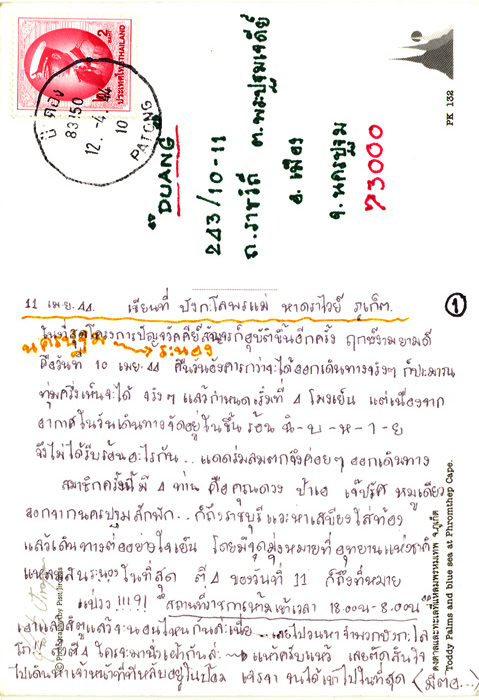 2 บาท
ประเทศไทย THAILAND
ป่าตอง
83150
12.-4.
10
PATONG
DUANG
243/10-11
ถ.ราชวิถี ต.พระปฐมเจดีย์
อ.เมือง
จ.นครปฐม
73000
PK 132
①
11 เม.ย. 44. เขียนที่ บังกะโลพรแม่ หาดราไวย์ ภูเก็ต.
ในที่สุดโครงการปัญจวัคคีย์สัญจรก็อุบัติขึ้นอีกครั้ง ฤกษ์งามยามดี
นครปฐม → ระนอง
คือวันที่ 10 เม.ย. 44 คืนวันอังคารกว่าจะได้ออกเดินทางจริงๆ ก็ประมาณ
ทุ่มครึ่งเห็นจะได้ จริงๆ แล้วกำหนดเริ่มที่ 4 โมงเย็น แต่เนื่องจาก
อากาศในวันเดินทางจัดอยู่ในขั้น ร้อน ฉิ-บ-ห-า-ย
จึงไม่ได้รีบร้อนอะไรกัน.. แดดร่มลมตกจึงค่อยๆ ออกเดินทาง
สมาชิกครั้งนี้มี 4 ท่าน คือคุณดวง ป้าเอ เจ๊ปรีศ หมูเดียว
ออกจากนครปฐมสักพัก.. ก็ถึงราชบุรีแวะหาเสบียงใส่ท้อง
แล้วเดินทางต่ออย่างใจเย็น โดยมีจุดมุ่งหมายที่อุทยานแห่งชาติ
แหลมสน ระนอง ในที่สุด ตี 4 ของวันที่ 11 ก็ถึงที่หมาย
แป่วว !!!9! "สถานที่ราชการห้ามเข้าเวลา 18.00น-8.00น"
เอาแล้วสิตูแล้วจะนอนไหนกันล่ะเนี่ย
ไปเดินหาเจ้าหน้าที่ที่หลับอยู่ในป้อม เจรจา จนได้เข้าไปในที่สุด (มีต่อ...)
ตงตาลและทะเลที่แหลมพรหมเทพ จ.ภูเก็ต
Toddy Palms and blue sea at Phromthep Cape.